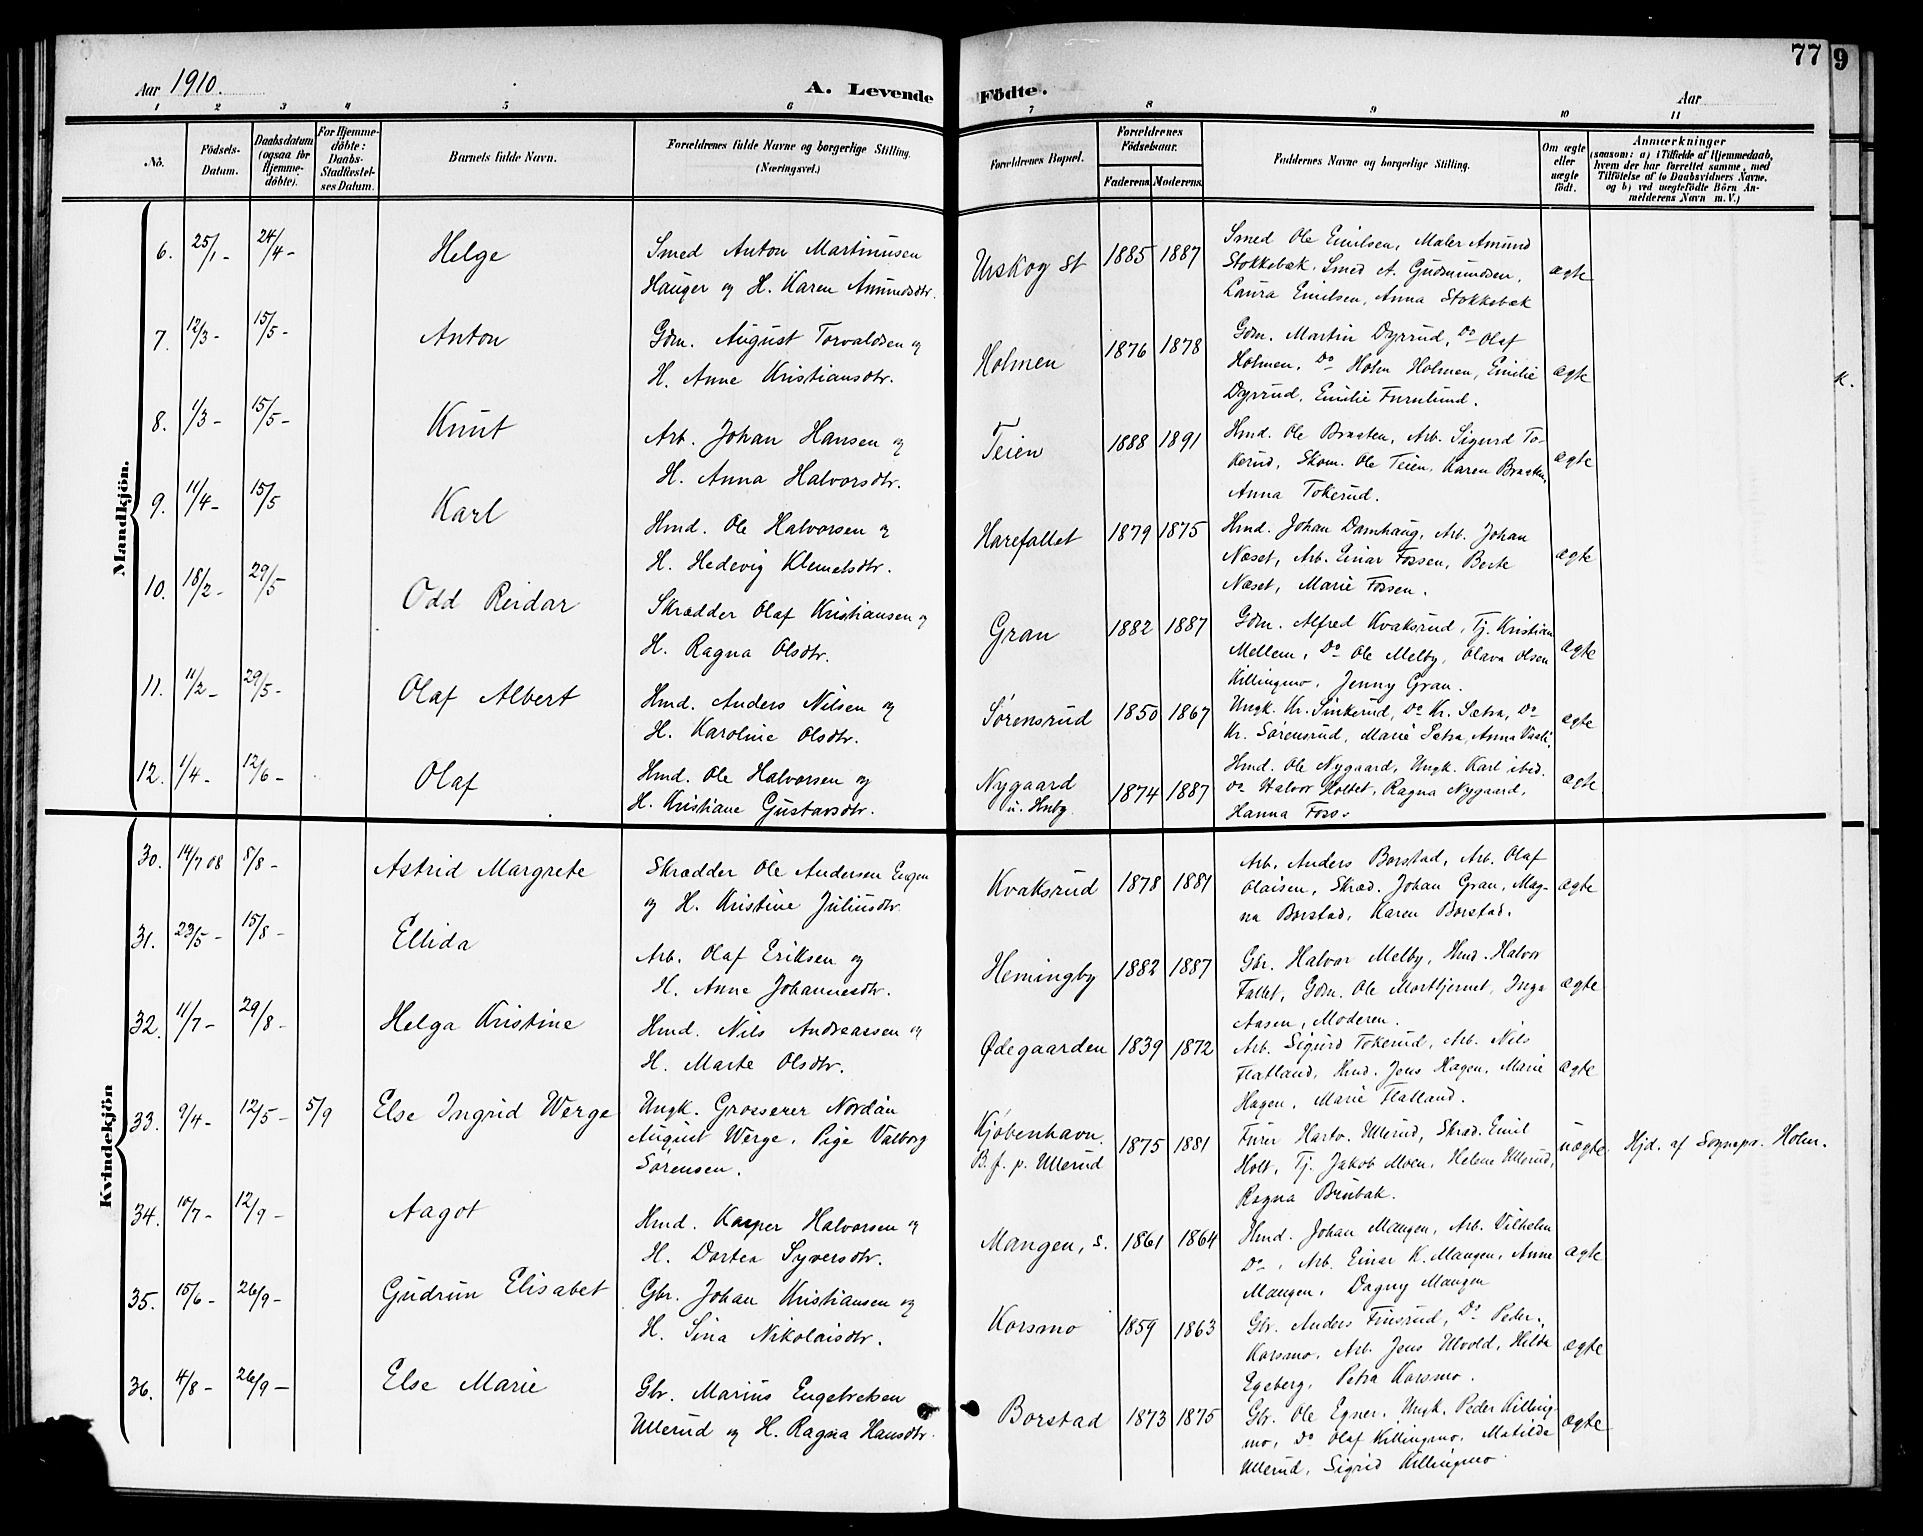 Aar 1910.
A. Levende Födte.
Aar
77
9
1 2 3 4 5 6 7 8 9 10 11
No.
Födsels-Datum.
Daabsdatum (ogsaa for Hjemme-döbte).
For Hjemme-döbte: Daabs-Stadfæstel-ses Datum.
Barnets fulde Navn.
Forældrenes fulde Navne og borgerlige Stilling. (Næringsvei.)
Forældrenes Bopæl.
Forældrenes Födselsaar.
Faderens. Moderens.
Faddernes Navne og borgerlige Stilling.
Om ægte eller uægte födt.
Anmærkninger
(saasom: a) i Tilfælde af Hjemmedaab, hvem der har forrettet samme, med Tilföielse af to Daabsvidners Navne. og b) ved uægtefödte Börn An-melderens Navn m. V.)
Mandkjön.
6. 25/1 - 24/4 - Helge Smed Anton Martinusen
Hauger og H. Karen Amundsdtr. Urskog St 1885 1887 Smed Ole Emilsen, Maler Amund
Stokkebæk. Smed A. Gudmundsen,
Laura Emilsen, Anna Stokkebæk ægte
7. 12/3 - 15/5 - Anton Gdm. August Torvaldsen og
H. Anne Kristiansdtr. Holmen 1876 1878 Gdm. Martin Dyrrud, Do Olaf
Holmen, Do Holm Holmen, Emilie
Dyrrud, Emilie Furulund. ægte
8. 1/3 - 15/5 - Knut Arb. Johan Hansen og
H. Anna Halvorsdtr. Teien 1888 1891 Hmd. Ole Braaten, Arb. Sigurd To-
kerud, Skom. Ole Teien, Karen Braaten,
Anna Tokerud. ægte
9. 11/4 - 15/5 Karl Hmd. Ole Halvorsen og
H. Hedevig Klemetsdtr. Harefallet 1879 1875 Hmd. Johan Damhaug, Arb. Johan
Næset, Arb. Einar Fossen, Berte
Næset, Marie Fossen. ægte
10. 18/2 - 29/5 Odd Reidar Skrædder Olaf Kristiansen og
H. Ragna Olsdtr. Gran 1882 1887 Gdm. Alfred Kvaksrud, Tj. Kristian
Mellem, Do Ole Melby, Olava Olsen
Killingmo, Jenny Gran. ægte
11. 11/2 - 29/5 - Olaf Albert Hmd. Anders Nilsen og
H. Karoline Olsdtr. Sørensrud 1850 1867 Ungk. Kr. Sinkerud, Do Kr. Sætra, Do
Kr. Sørensrud, Marie Sætra, Anna ægte
12. 1/4 - 12/6 - Olaf Hmd. Ole Halvorsen og
H. Kristiane Gustavsdtr. Nygaard
u. Hnby. 1874 1887 Hmd. Ole Nygaard, Ungk. Karl ibid.
Do Halvor Holtet, Ragna Nygaard,
Hanna Foss. ægte
Kvindekjön
30. 14/7 08 8/8 - Astrid Margrete Skrædder Ole Andersen Engen
og H. Kristine Juliusdtr. Kvaksrud 1878 1881 Arb. Anders Borstad, Arb. Olaf
Olaisen, Skræd. Johan Gran, Mag-
na Borstad, Karen Borstad. ægte
31. 23/5 - 15/8 - Ellida Arb. Olaf Eriksen og
H. Anne Johannesdtr. Hemingby 1882 1887 Gbr. Halvor Melby, Hmd. Halvor
Fallet, Gdm. Ole Morttjernet, Inga
Aasen, Moderen. ægte
32. 11/7 - 29/8 - Helga Kristine Hmd. Nils Andreassen og
H. Marte Olsdtr. Ødegaarden 1839 1872 Arb. Sigurd Tokerud, Arb. Nils
Flatland, Hmd. Jens Hagen, Marie
Hagen, Marie Flatland. ægte
33. 9/4 - 12/5 - 5/9 Else Ingrid Werge Ungk. Grosserer Nordan
August Werge, Pige Valborg
Sørensen. Kjøbenhavn.
B. f. p. Ullerud 1875 1881 Furer Hartv. Ullerud, Skræd. Emil
Holt, Tj. Jakob Moen, Helene Ullerud,
Ragna Brubak. uægte Hjd. af Sognepr. Holm.
34. 10/7 - 12/9 - Aagot Hmd. Kasper Halvorsen og
H. Dortea Syversdtr. Mangen, s. 1861 1864 Hmd. Johan Mangen, Arb. Vilhelm
Do, Arb. Einar K. Mangen, Anne
Mangen, Dagny Mangen ægte
35. 15/6 - 26/9 - Gudrun Elisabet Gbr. Johan Kristiansen og
H. Sina Nikolaisdtr. Korsmo 1859 1863 Gbr. Anders Finsrud, Do Peder
Korsmo, Arb. Jens Ulvold, Hilda
Egeberg, Petra Korsmo. ægte
36. 4/8 - 26/9 - Else Marie Gbr. Marius Engebretsen
Ullerud og H. Ragna Hansdtr. Borstad 1873 1875 Gbr. Ole Egner, Ungk. Peder Killing-
mo, Do Olaf Killingmo, Matilde
Ullerud, Sigrid Killingmo ægte